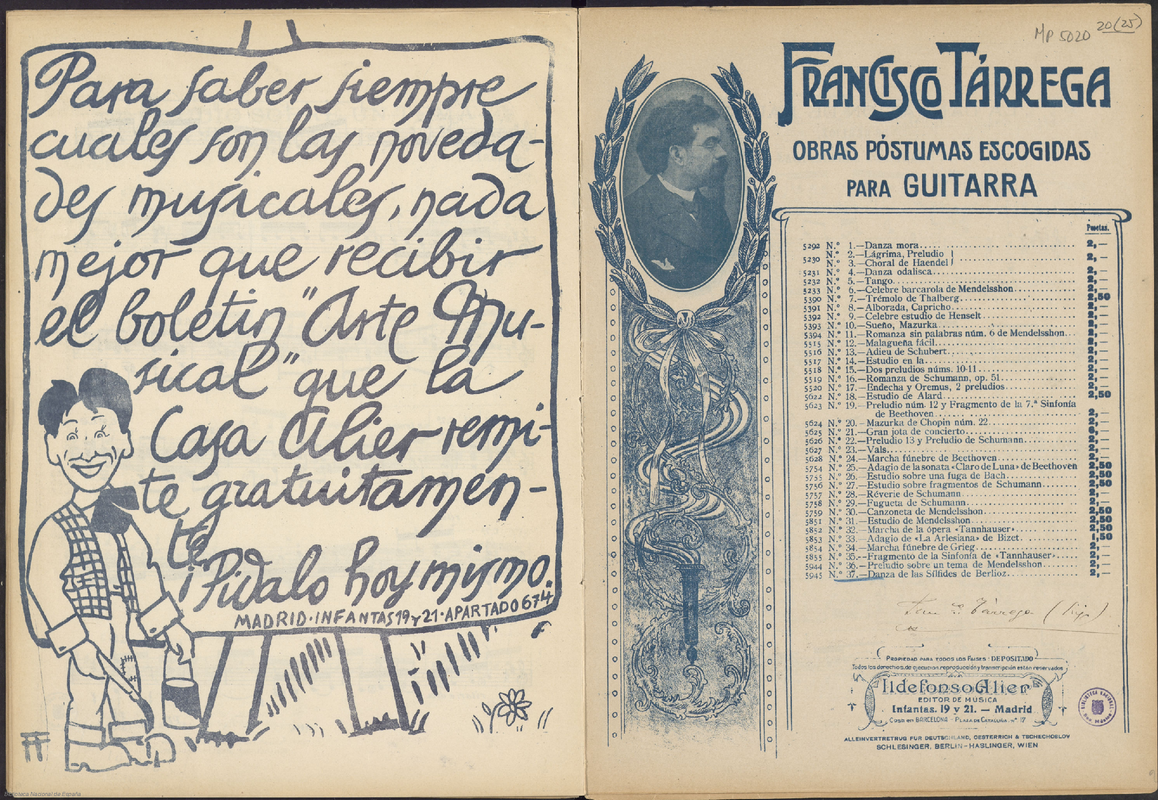 Para saber siempre
cuales son las noveda-
des musicales, nada
mejor que recibir
el boletin "Arte Mu-
sical" que la
Casa Alier remi-
te gratuitamen-
te
¡Pidalo hoy mismo.
MADRID·INFANTAS 19 y 21·APARTADO 674
Biblioteca Nacional de España
MP 5020 20(25)
FRANCISCO TÁRREGA
OBRAS PÓSTUMAS ESCOGIDAS
PARA GUITARRA
Pesetas.
5292 N.º 1.—Danza mora 2,—
5230 N.º 2.—Lágrima, Preludio
N.º 3.—Choral de Haendel 2,—
5231 N.º 4.—Danza odalisca 2,—
5232 N.º 5.—Tango 2,—
5233 N.º 6.—Celebre barcarola de Mendelsshon 2,—
5390 N.º 7.—Trémolo de Thalberg 2,50
5391 N.º 8.—Alborada, Capricho 2,—
5392 N.º 9.—Celebre estudio de Henselt 2,—
5393 N.º 10.—Sueño, Mazurka 2,—
5394 N.º 11.—Romanza sin palabras núm. 6 de Mendelsshon 2,—
5515 N.º 12.—Malagueña fácil 2,—
5516 N.º 13.—Adieu de Schubert 2,—
5517 N.º 14.—Estudio en la 2,—
5518 N.º 15.—Dos preludios núms. 10-11 2,—
5519 N.º 16.—Romanza de Schumann, op. 51 2,—
5520 N.º 17.—Endecha y Oremus, 2 preludios 2,—
5622 N.º 18.—Estudio de Alard 2,50
5623 N.º 19.—Preludio núm. 12 y Fragmento de la 7.ª Sinfonía
de Beethoven 2,—
5624 N.º 20.—Mazurka de Chopin núm. 22 2,—
5625 N.º 21.—Gran jota de concierto 6,—
5626 N.º 22.—Preludio 13 y Preludio de Schumann 2,—
5627 N.º 23.—Vals 2,—
5628 N.º 24.—Marcha fúnebre de Beethoven 2,—
5754 N.º 25.—Adagio de la sonata «Claro de Luna» de Beethoven 2,50
5755 N.º 26.—Estudio sobre una fuga de Bach 2,50
5756 N.º 27.—Estudio sobre fragmentos de Schumann 2,50
5757 N.º 28.—Réverie de Schumann 2,—
5758 N.º 29.—Fugueta de Schumann 2,—
5759 N.º 30.—Canzoneta de Mendelsshon 2,50
5851 N.º 31.—Estudio de Mendelsshon 2,50
5852 N.º 32.—Marcha de la ópera «Tannhauser» 2,50
5853 N.º 33.—Adagio de «La Arlesiana» de Bizet 1,50
5854 N.º 34.—Marcha fúnebre de Grieg 2,—
5855 N.º 35.—Fragmento de la Sinfonía de «Tannhauser» 2,—
5944 N.º 36.—Preludio sobre un tema de Mendelsshon 2,—
5945 N.º 37.—Danza de las Sílfides de Berlioz 2,—
Tárrega (hijo)
PROPIEDAD PARA TODOS LOS PAISES · DEPOSITADO
Todos los derechos de ejecucion reproduccion y transcripción estan reservados
Ildefonso Alier
EDITOR DE MUSICA
Infantas, 19 y 21. — Madrid
CASA EN BARCELONA - PLAZA DE CATALUÑA, nº 17
BIBLIOTECA NACIONAL
ALLEINVERTRETUG FUR DEUTSCHLAND, OESTERRICH & TSCHECHOSLOV
SCHLESINGER, BERLIN-HASLINGER, WIEN